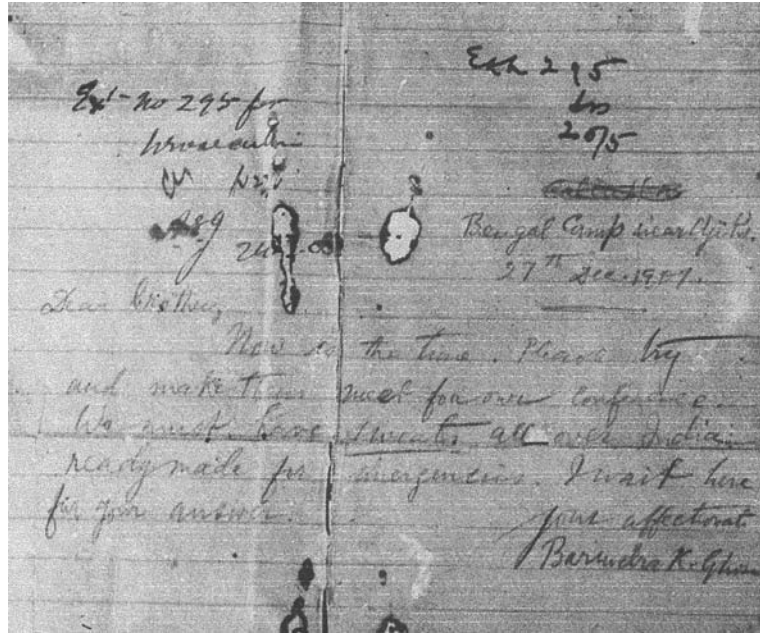 Ext- No 295 for
Exh 295
20/5
Bengal Camp near Ajit's.
27th Dec. 1907.
Dear Brother,
Now is the time. Please try
and make them meet for our conference.
We must have sweets all over India
readymade for emergencies. I wait here
for your answer.
your affectionate
Barindra K. Ghose